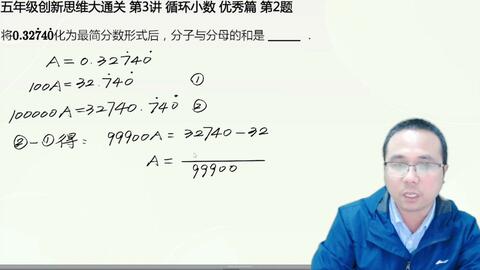 五年级创新思维大通关 第3讲 循环小数 优秀篇 第2题
将0.327̇40̇化为最简分数形式后，分子与分母的和是 _____ ．
A = 0.327̇40̇
100A = 32.7̇40̇ ①
100000A = 32740.7̇40̇ ②
②-①得： 99900A = 32740-32
A = ───
99900